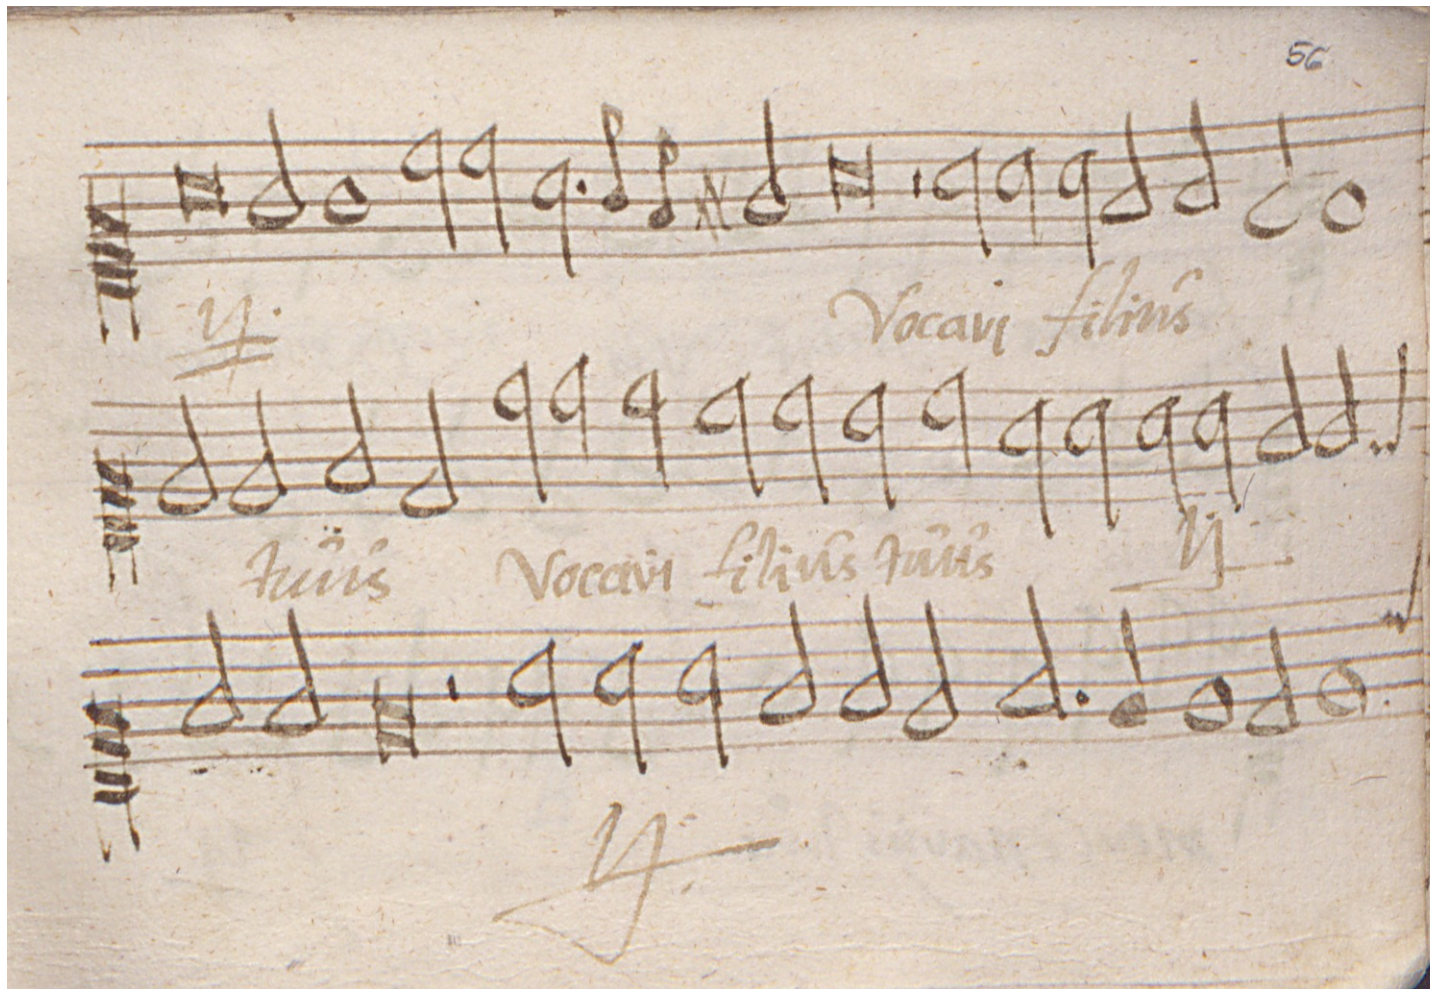 56
ij.
Vocavi filiūs
tuūs Vocavi filiūs tuūs ij
ij.